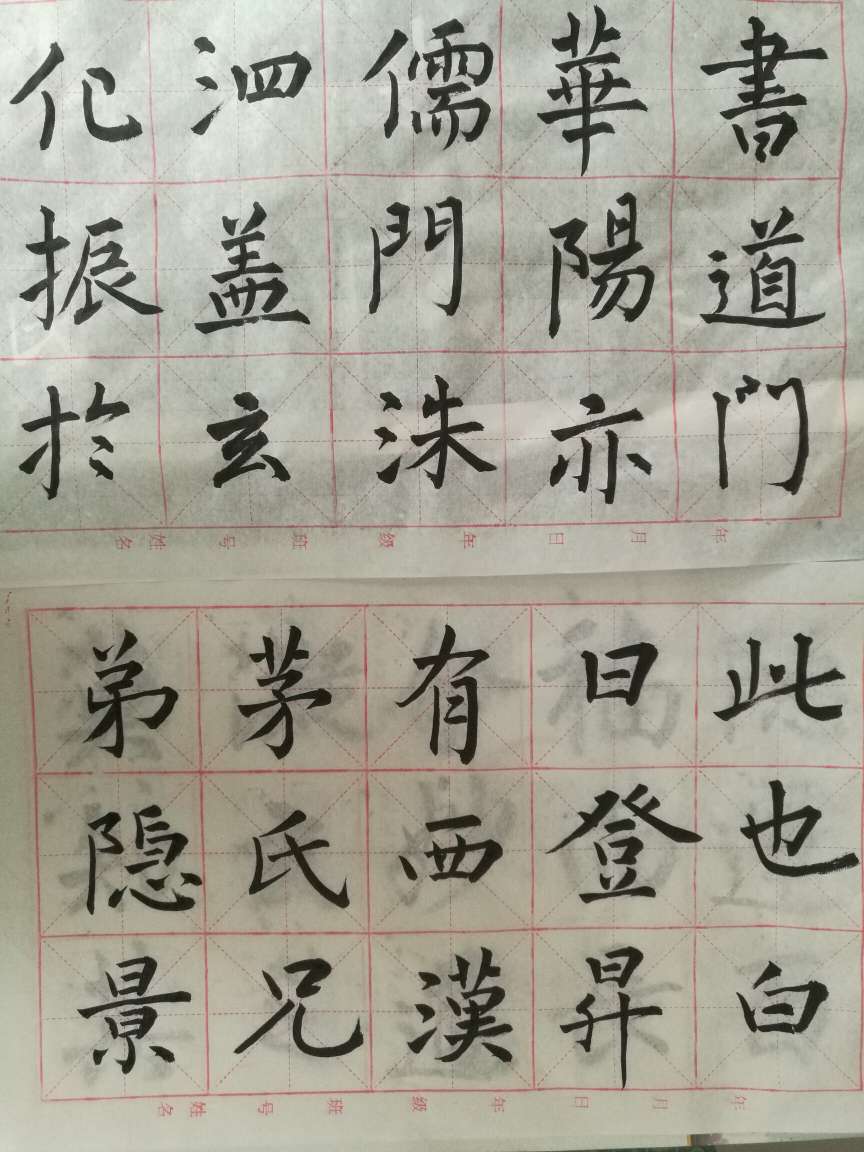 書道門
華陽亦
儒門洙
泗盖玄
化振於
年 月 日 年级 班 号 姓名
此也白
日登昇
有西漢
茅氏兄
弟隐景
年 月 日 年级 班 号 姓名